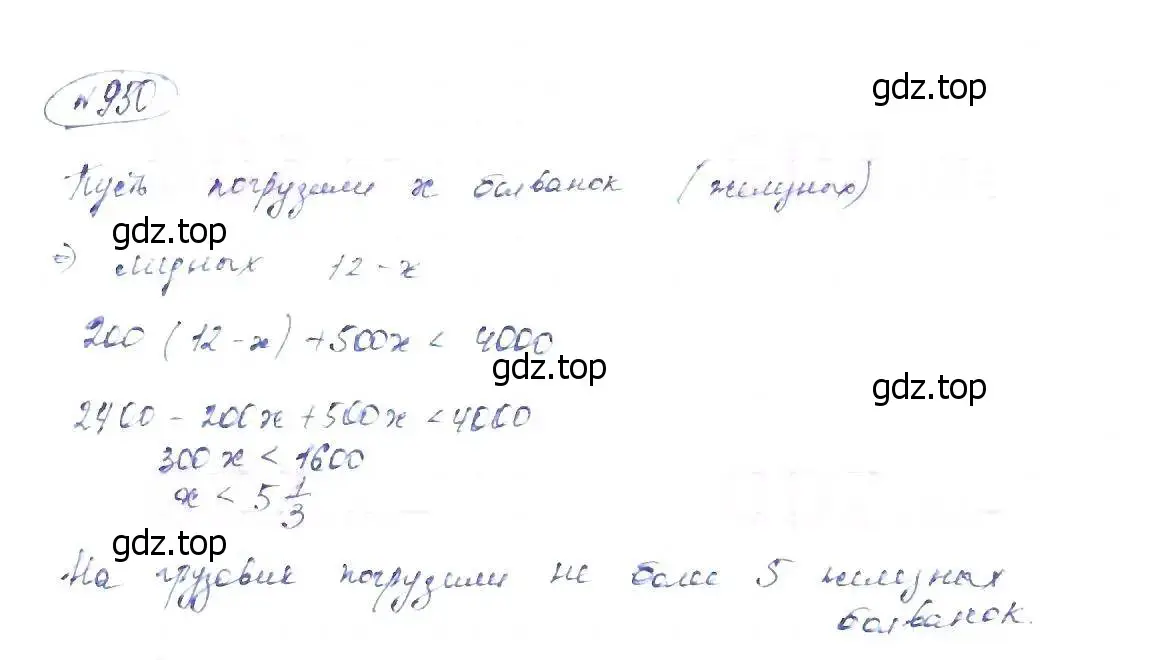 №950
gdz.top
Пусть погрузили x болванок (железных)
gdz.top
=> медных 12-x
200(12-x)+500x < 4000
gdz.top
gdz.top
2400-200x+500x<4000
300x < 1600
x < 5 1/3
gdz.top
На грузовик погрузили не более 5 железных
болванок.